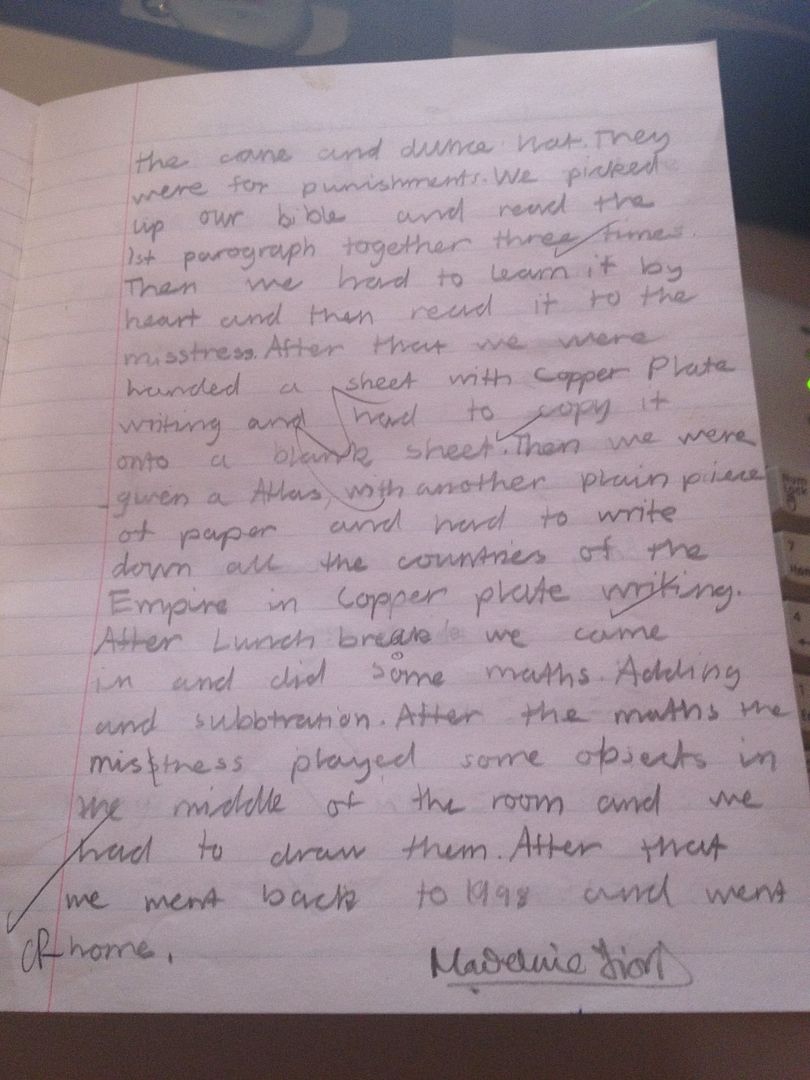 the cane and dunce hat. They
were for punishments. We picked
up our bible and read the
1st paragraph together three times.
Then we had to learn it by
heart and then read it to the
misstress. After that we were
handed a sheet with Copper Plate
writing and had to copy it
onto a blank sheet. Then we were
given a Atlas with another plain piece
of paper and had to write
down all the countries of the
Empire in Copper plate writing.
After Lunch break we came
in and did some maths. Adding
and subbtration. After the maths the
misstress played some objects in
the middle of the room and we
had to draw them. After that
we went back to 1998 and went
home.